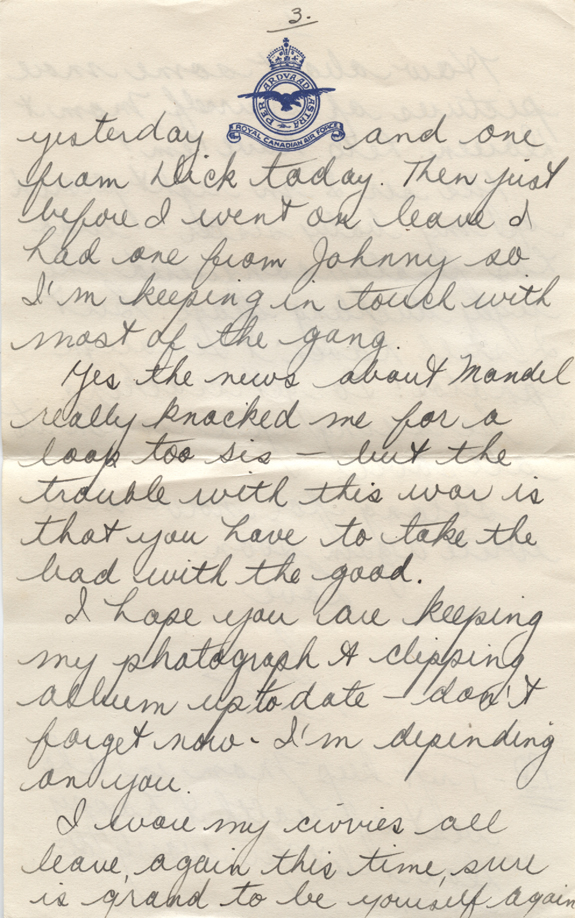 3.
PER ARDVA AD ASTRA
ROYAL CANADIAN AIR FORCE
yesterday and one
from Dick today. Then just
before I went on leave I
had one from Johnny so
I'm keeping in touch with
most of the gang.
Yes the news about Mandel
really knocked me for a
loop too sis - but the
trouble with this war is
that you have to take the
bad with the good.
I hope you are keeping
my photograph & clipping
album up to date - don't
forget now - I'm depending
on you.
I wore my civvies all
leave, again this time, sure
is grand to be yourself again